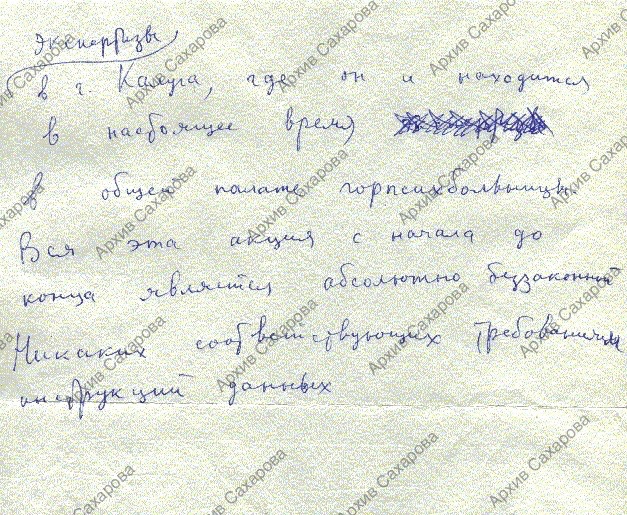 экспертизы
в г. Калуга, где он и находится
в настоящее время
в общей палате горпсихбольницы.
Вся эта акция с начала до
конца является абсолютно беззаконн
Никаких соответствующих требованиям
инструкций данных
Архив Сахарова